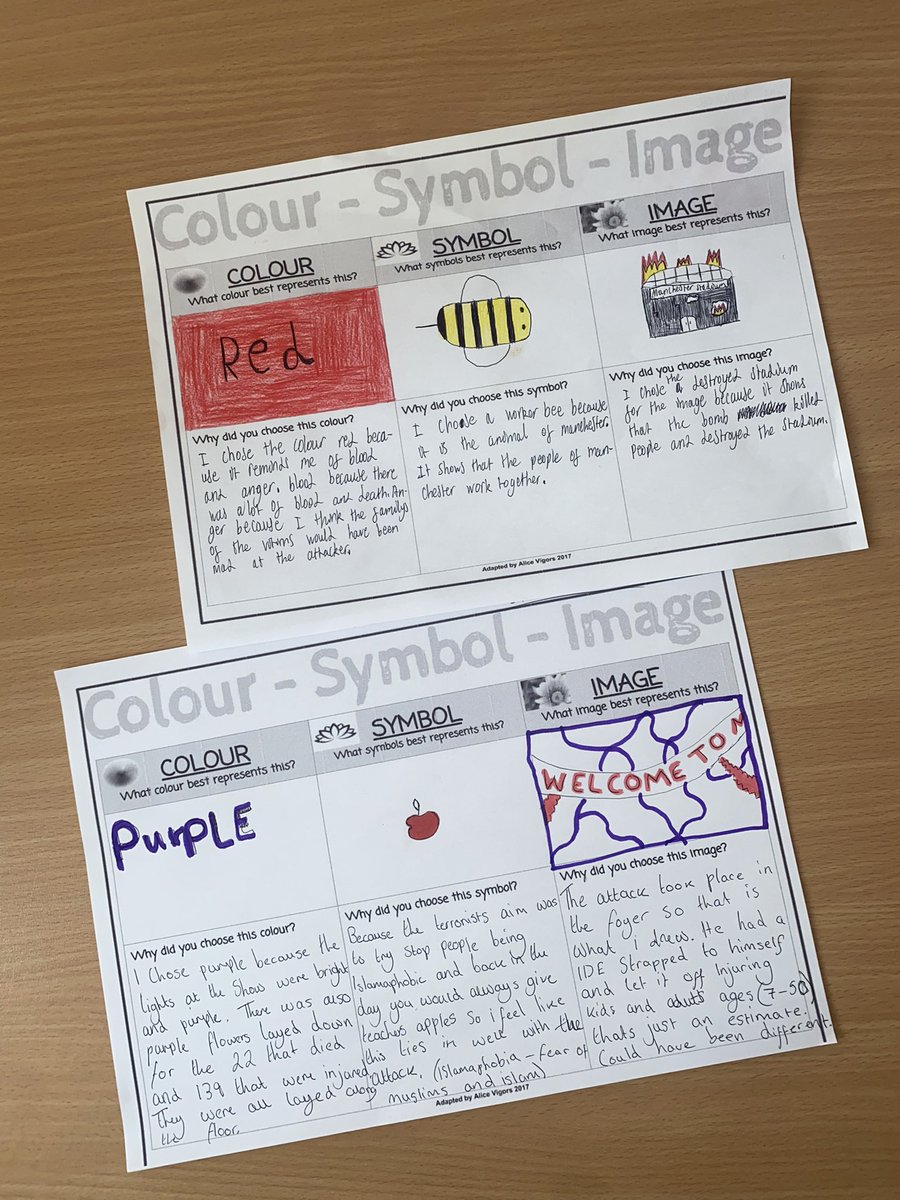 Colour - Symbol - Image
COLOUR
What colour best represents this?
SYMBOL
What symbols best represents this?
IMAGE
What image best represents this?
Red
Manchester Stadium
Why did you choose this colour?
I chose the colour red beca-
use it reminds me of blood
and anger. blood because there
was a lot of blood and death. An-
ger because I think the familys
of the victims would have been
mad at the attacker.
Why did you choose this symbol?
I choose a workor bee because
it is the animal of manchester.
It shows that the people of man-
chester work together.
Why did you choose this image?
I chose the a destroyed stadium
for the image because it shows
that the bomb killed
people and destroyed the stadium.
Adapted by Alice Vigors 2017
Colour - Symbol - Image
COLOUR
What colour best represents this?
SYMBOL
What symbols best represents this?
IMAGE
What image best represents this?
PurpLE
WELCOME TO M
Why did you choose this colour?
I chose purple because the
lights at the show were bright
and purple. There was also
purple flowers layed down
for the 22 that died
and 139 that were injured
They were all layed along
the floor.
Why did you choose this symbol?
Because the terrorists aim was
to try stop people being
Islamaphobic and back in the
day you would always give
teachers apples so i feel like
this ties in well with the
attack. (islamaphobia - fear of
muslims and islam)
Why did you choose this image?
The attack took place in
the foyer so that is
what i drew. He had a
IDE strapped to himself
and let it off Injuring
kids and adults ages (7-50)
thats just an estimate.
Could have been different.
Adapted by Alice Vigors 2017